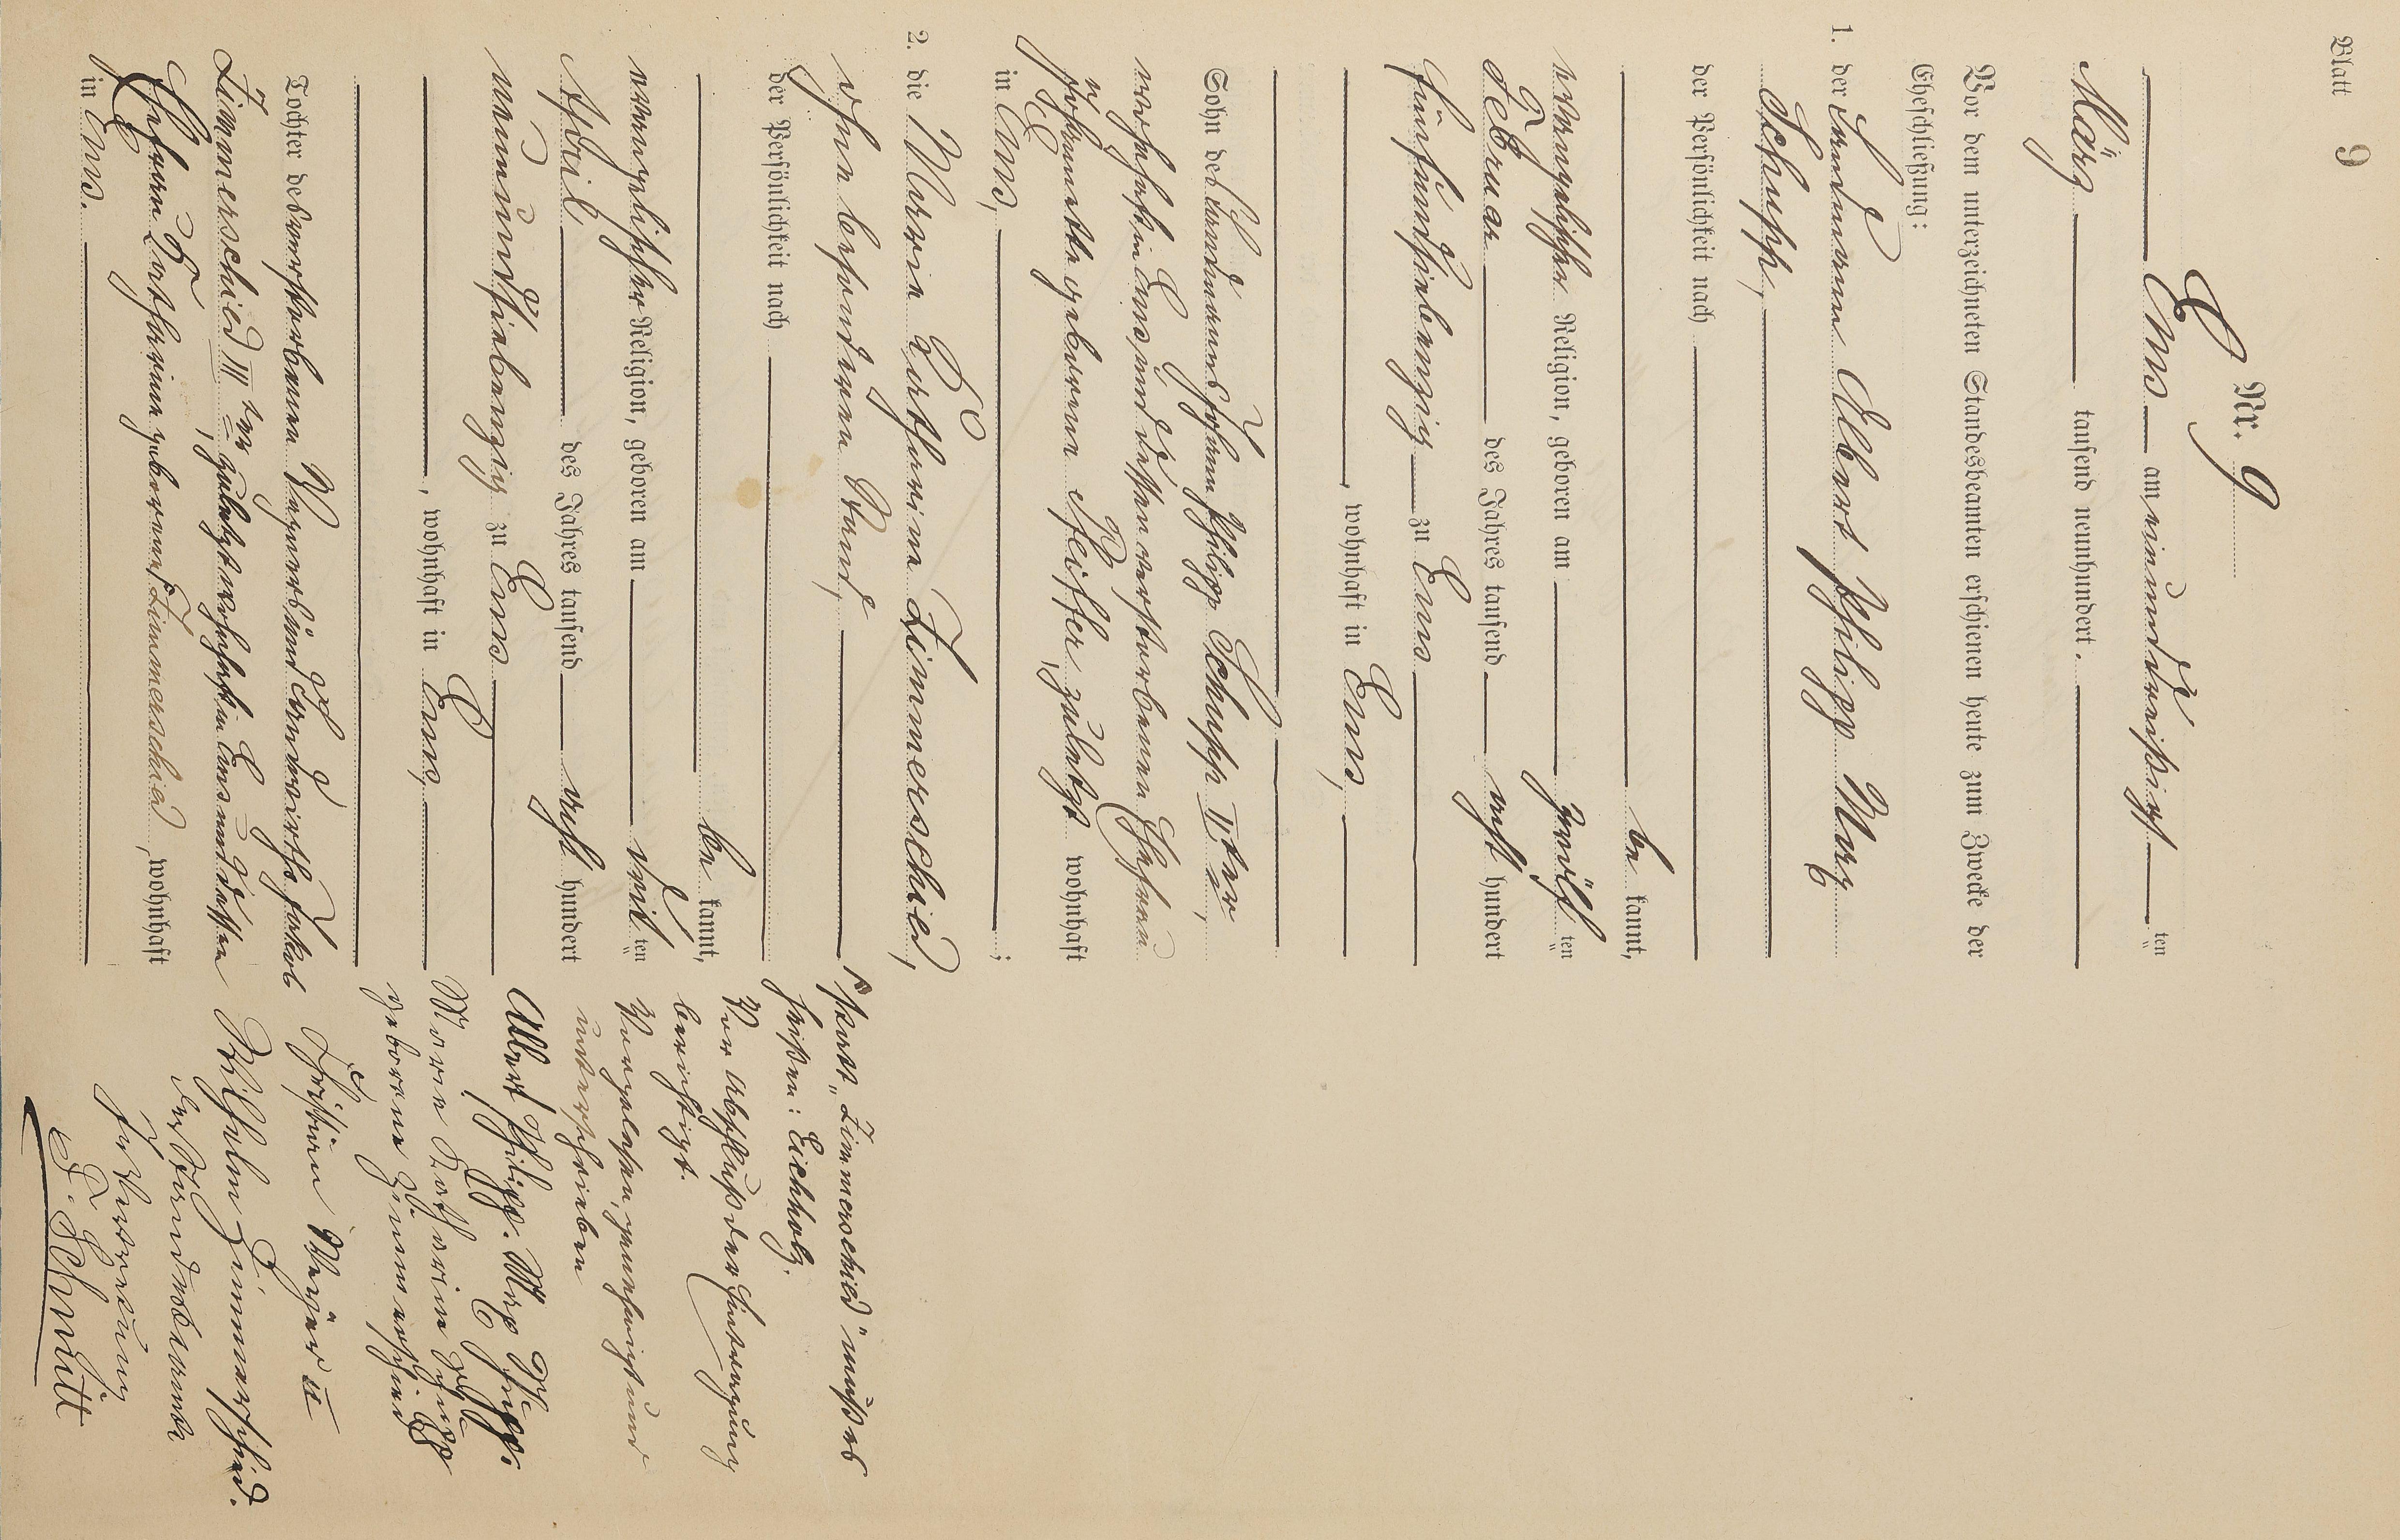 Blatt 9
Nr. 9
Ems am einunddreißigsten
März tausend neunhundert.
Vor dem unterzeichneten Standesbeamten erschienen heute zum Zwecke der
Eheschließung:
1. der Landmann Albert Philipp Marx
Schupp,
der Persönlichkeit nach
be kannt,
evangelischer Religion, geboren am zwölf ten
Februar des Jahres tausend acht hundert
fünfundsiebenzig zu Ems
, wohnhaft in Ems,
Sohn des Landmanns Johann Philipp Schupp IIter,
wohnhaft in Ems und dessen verstorbenen Ehefrau
geborenen Pfeiffer, zuletzt wohnhaft
in Ems, ;
2. die Marie Katharine Zimmerschied,
ohne besonderen Stand,
der Persönlichkeit nach
be kannt,
evangelischer Religion, geboren am drit ten
April des Jahres tausend acht hundert
neunundsiebenzig zu Ems
, wohnhaft in Ems,
Tochter des verstorbenen Wegwarts und Landwirths Jakob
Zimmerschied IIIter, zuletzt wohnhaft in Ems und dessen
Ehefrau Katharine geborenen Zimmerschied, wohnhaft
in Ems.
statt "Zimmerschied" muß es
heißen: Eichholz.
Vor Abschluß der Eintragung
berichtigt.
Vorgelesen, genehmigt und
unterschrieben
Albert Philipp Marx Schupp.
Marie Katharine Schupp
geborene Zimmerschied
Christian Wagner II
Wilhelm Zimmerschied.
Der Standesbeamte
In Vertretung
Schmitt